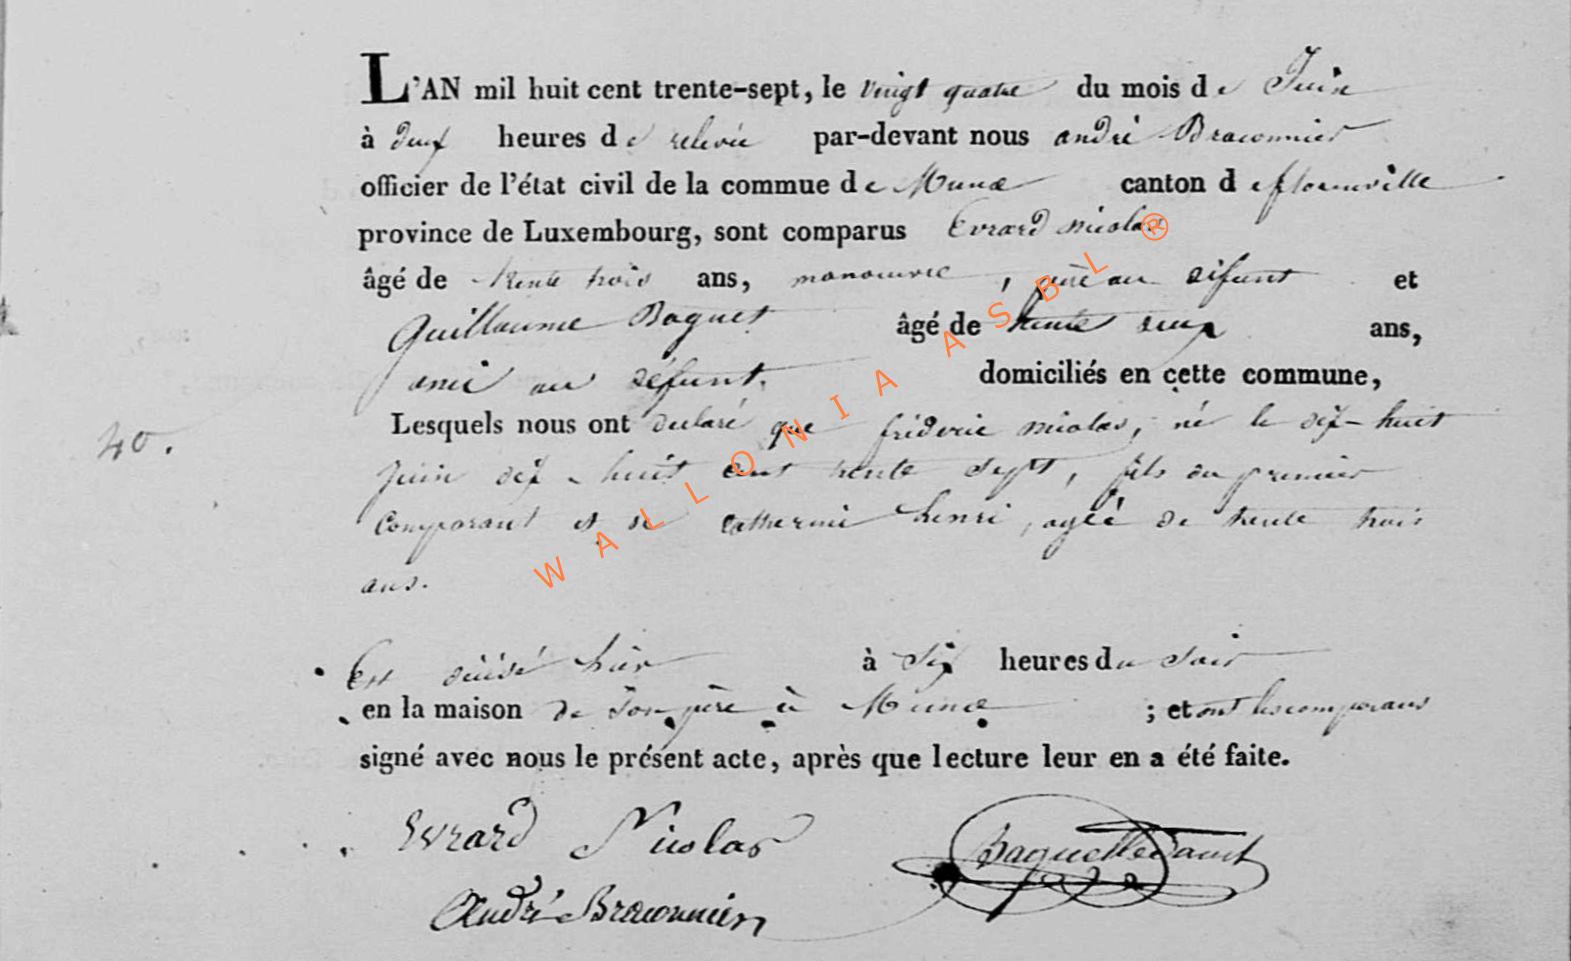 L'AN mil huit cent trente-sept, le vingt quatre du mois de Juin
à deux heures de relevée par-devant nous andré Braconnier
officier de l'état civil de la commue de Muno canton de florenville
province de Luxembourg, sont comparus Evrard nicolas
âgé de trente trois ans, manoeuvre, père au défunt et
Guillaume Baguet âgé de trente deux ans,
ami au défunt. domiciliés en cette commune,
40.
Lesquels nous ont declaré que fréderic nicolas, né le dix-huit
juin dix-huit cent trente sept, fils du premier
comparant et de catherine henri, agée de trente trois
ans.
Est décédé hier à six heures du soir
en la maison de son père à Muno ; et ont les comparans
signé avec nous le présent acte, après que lecture leur en a été faite.
Evrard Nicolas
André Braconnier
WALLONIA ASBL ®